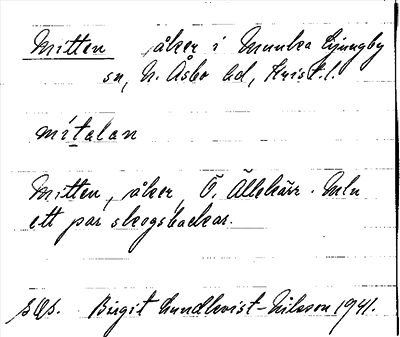 Mitten åker i Munka Ljungby
sn, N. Åsbo hd, Krist. l.
mitalan
Mitten, åker, Ö. Ällekärr. Mln
ett par skogsbackar.
Birgit Lundkvist-Nilsson 1941.